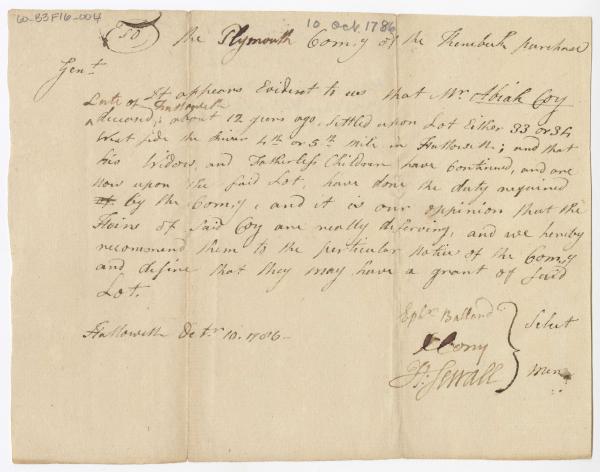 60-B3F16-004
10 Oct. 1786
To the Plymouth Comy. of the Kennebeck purchase
Gent.
It appears Evident to us that Mr. Abiah Coy
Late of Hallowell
deceased, about 12 years ago, settled upon Lot Either 33 or 34
West side the River 4th or 5th Mile in Hallowell; and that
his Widow, and Fatherless Children have Continued, and are
now upon the said Lot, have done the duty required
by the Comy; and it is our oppinion that the
Heirs of said Coy are really deserving, and we hereby
recommend them to the particular notice of the Comy
and desire that they may have a grant of said
Lot.
Hallowell Octr. 10. 1786-
Ephm. Ballard
Cony
H: Sewall
Select
men